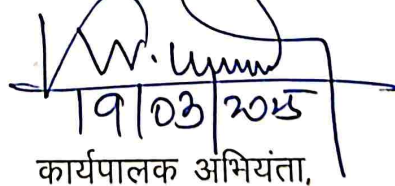 19/03/2025
कार्यपालक अभियंता,